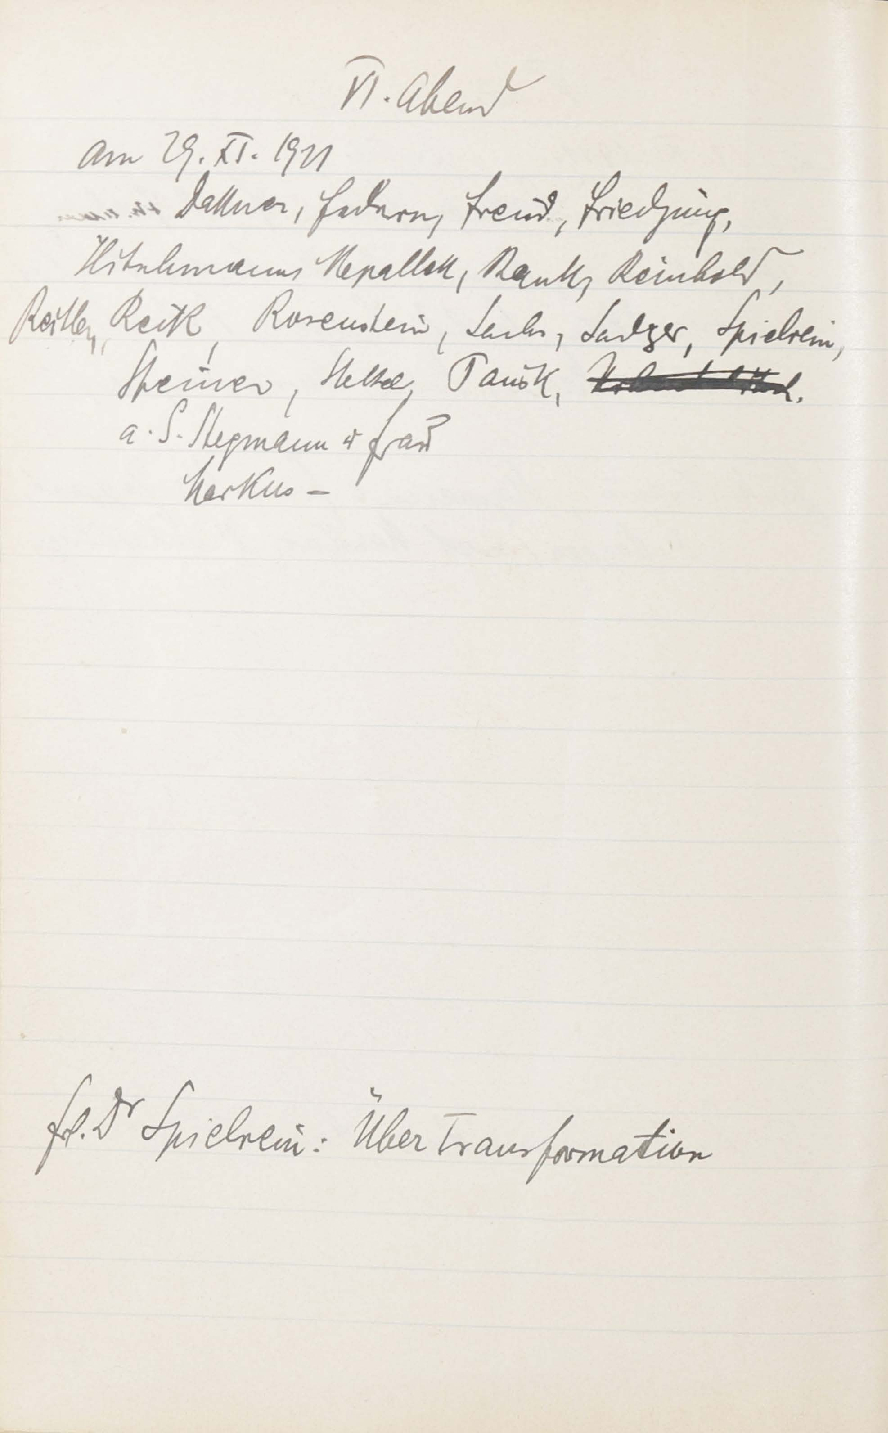 VI. Abend
am 29. XI. 1911
Dattner, Federn, Freud, Friedjung,
Hitschmann, Nepallek, Rank, Reinhold,
Reitler, Reik, Rosenstein, Sachs, Sadger, Spielrein,
Steiner, Stekel, Tausk,
a. G. Stegmann u Frau
Markus –
Frl. Dr Spielrein: Über Transformation